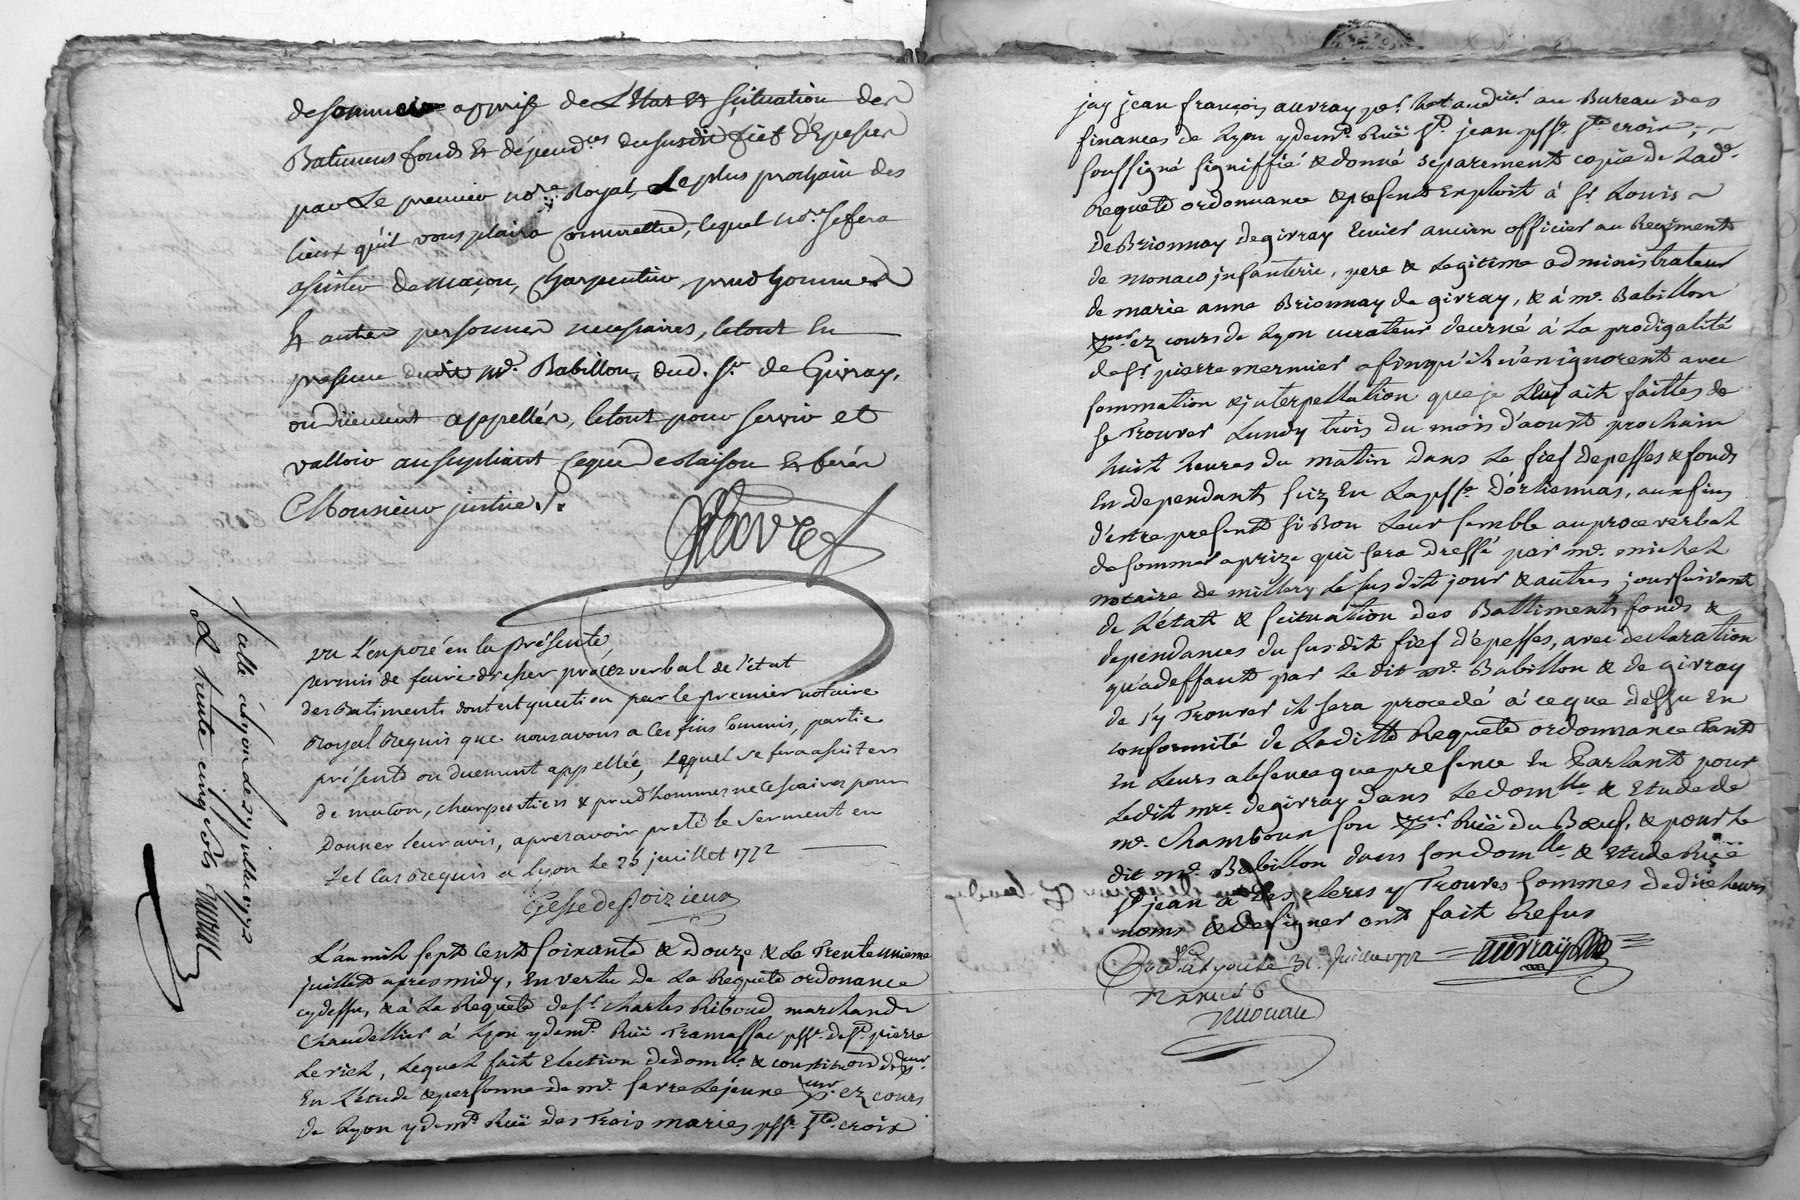 de sommaire apprise de L'Etat et scituation des
Batimens fonds et dépend.ces du susdit fief d'Epesses
par Le premier no.re Royal, Le plus prochain des
lieux qu'il vous plaira commettre, lequel no.re se fera
assister de maçon, charpentier, prud'hommes
et autres personnes necessaires, letout En
presence dudit M.e Babillon, dud. S.r de Givray,
ou düement appellés, letout pour servir et
valloir au supliant ceque de raison et ferés
Monsieur justice ./.
Favre
vu l'exposé en la présente,
permis de faire dresser procez verbal de l'état
des batiments dont est question par le premier notaire
Royal Requis que nous avons a ces fins commis, partie
présente ou duement appellée, Lequel se fera assister
de macon, charpentiers & prud'hommes necessaires pour
Donner leur avis, apres avoir preté le serment en
tel cas requis a lyon Le 25 juillet 1772
L'an mil sept cent soixante & douze & Le Trente unieme
juillet apres midy, En vertu de La Requete ordonance
cy dessu, & à La Requete de s.r Charles Riboud marchand
chandellier à Lyon y dem.t Ruë Tramassac pss.e de s.t pierre
Le viel, Lequel fait Election de dom.lle & constitution de
En L'etude & personne de m.e favre Lejeune p.r ez cours
de Lyon y dem.t Ruë des Trois maries pss.e s.te croix
Scellé a Lyon le 31 juillet 1772
R trente cinq sols
jay jean françois auvray au Bureau des
finances de Lyon y dem.t Ruë s.t jean pss.e s.te croix,
soussigné signiffié & donné séparément copie de Lad.e
Requete ordonnance & présent Exploit à s.r Louis
de Brionnay de givray Ecuier ancien officier au Regiment
de monaco infanterie, pere & Legitime administrateur
de marie anne Brionnay de givray, & à m.e Babillon
p.r ez cours de Lyon curateur decerné à La prodigalité
de s.r pierre mermier afin qu'ils n'en ignorent avec
sommation & interpellation que je Leur ait faittes de
se Trouver Lundy trois du mois d'aoust prochain
huit heures du matin dans Le fief depesses & fonds
En dependants sciz En La pss.e d'orlienas, aux fins
d'être present si Bon Leur semble au proce verbal
de sommaire aprize qui sera dressé par m.e michel
notaire de millery Le susdit jour & autres jours suivant
de L'état & scituation des Battiments fonds &
dependances du susdit fief d'épesses, avec declaration
qu'a deffaut par Le dit m.e Babillon & de givray
de s'y Trouver il sera procedé à ceque dessu En
conformité de Laditte Requete ordonnance Tant
En Leurs absence que presence En Parlant pour
Ledit m.re de givray dans Le dom.lle & Etude de
m.e Chambour son p.r Ruë du Bœuf, & pour Le
dit m.e Babillon dans son dom.lle & Etude Ruë
s.t jean à des clercs y Trouvés sommés de dire Leurs
noms & de signer ont fait Refus
auvray